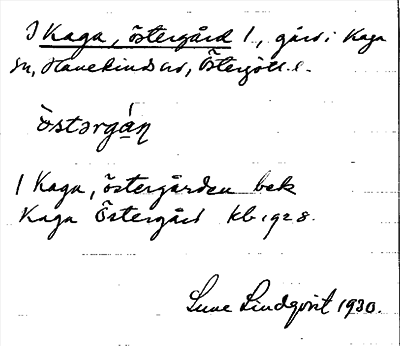 I Kaga, östergård 1, gård i Kaga
sn, Hanekinds hd, Östergötl. l.
östərgá̱ṇ
1 Kaga, östergården bek
Kaga Östergård kb 1928.
Sune Lindqvist 1930.